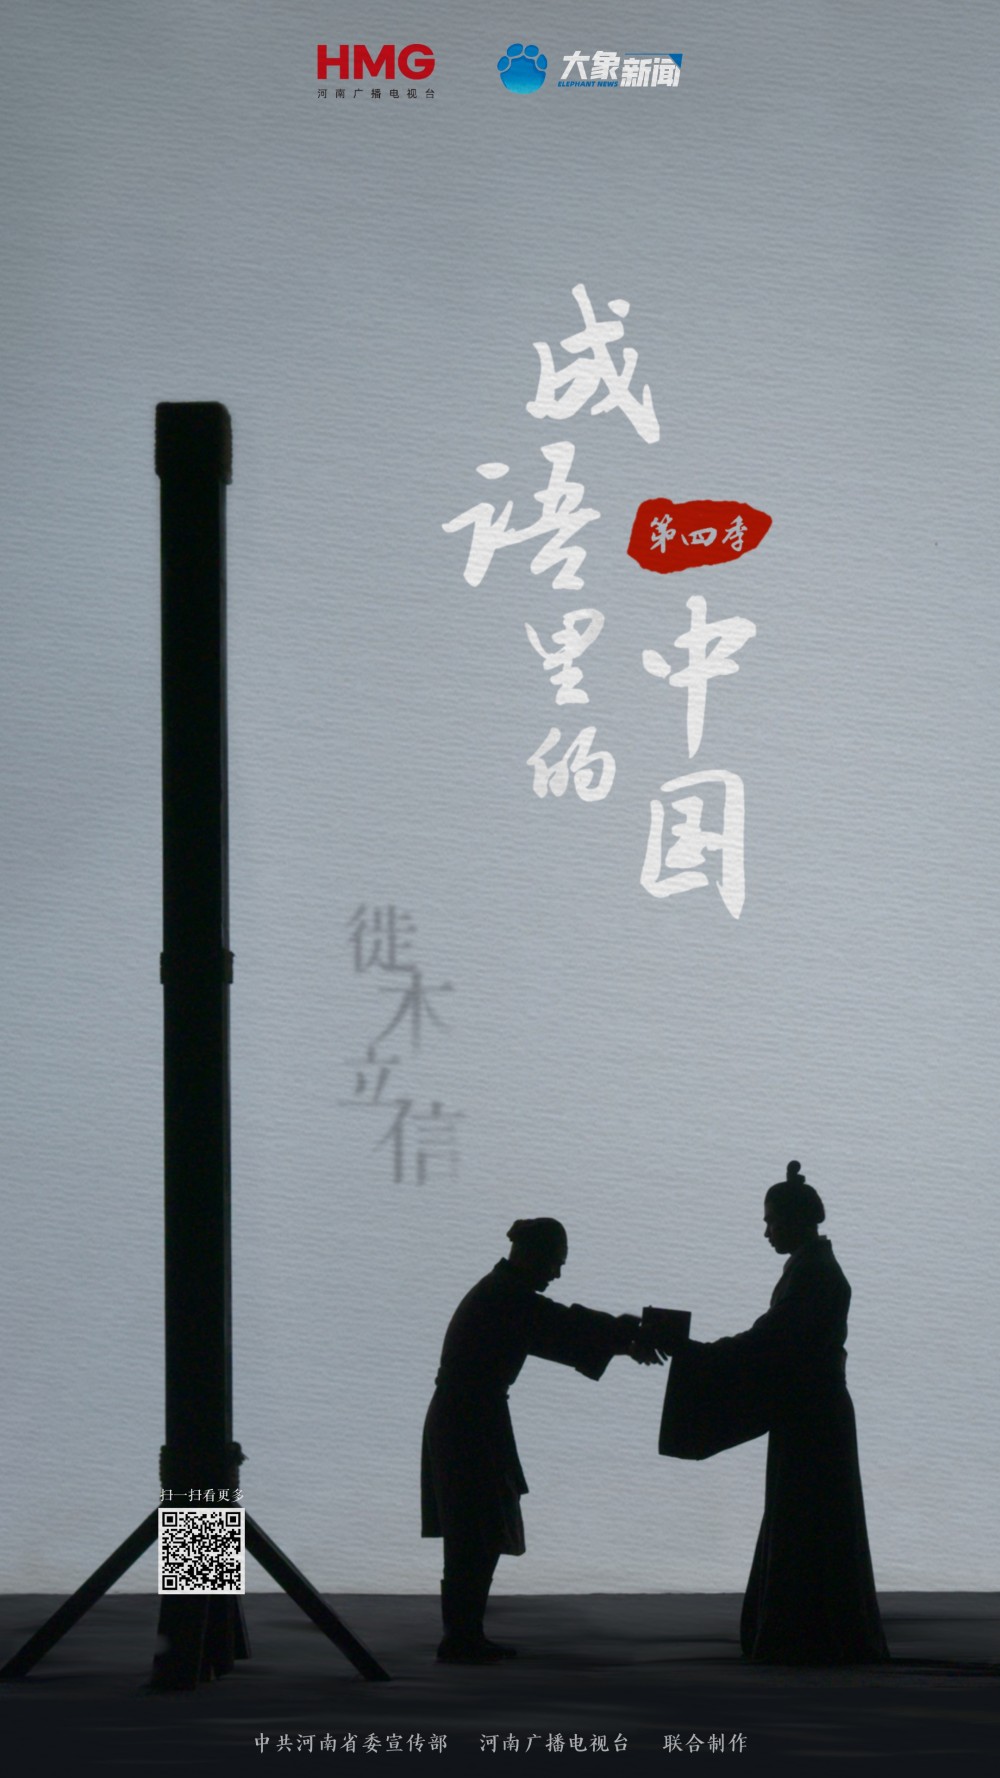 HMG
河南广播电视台
大象新闻
ELEPHANT NEWS
成语里的
第四季
中国
徙木立信
扫一扫看更多
中共河南省委宣传部 河南广播电视台 联合制作